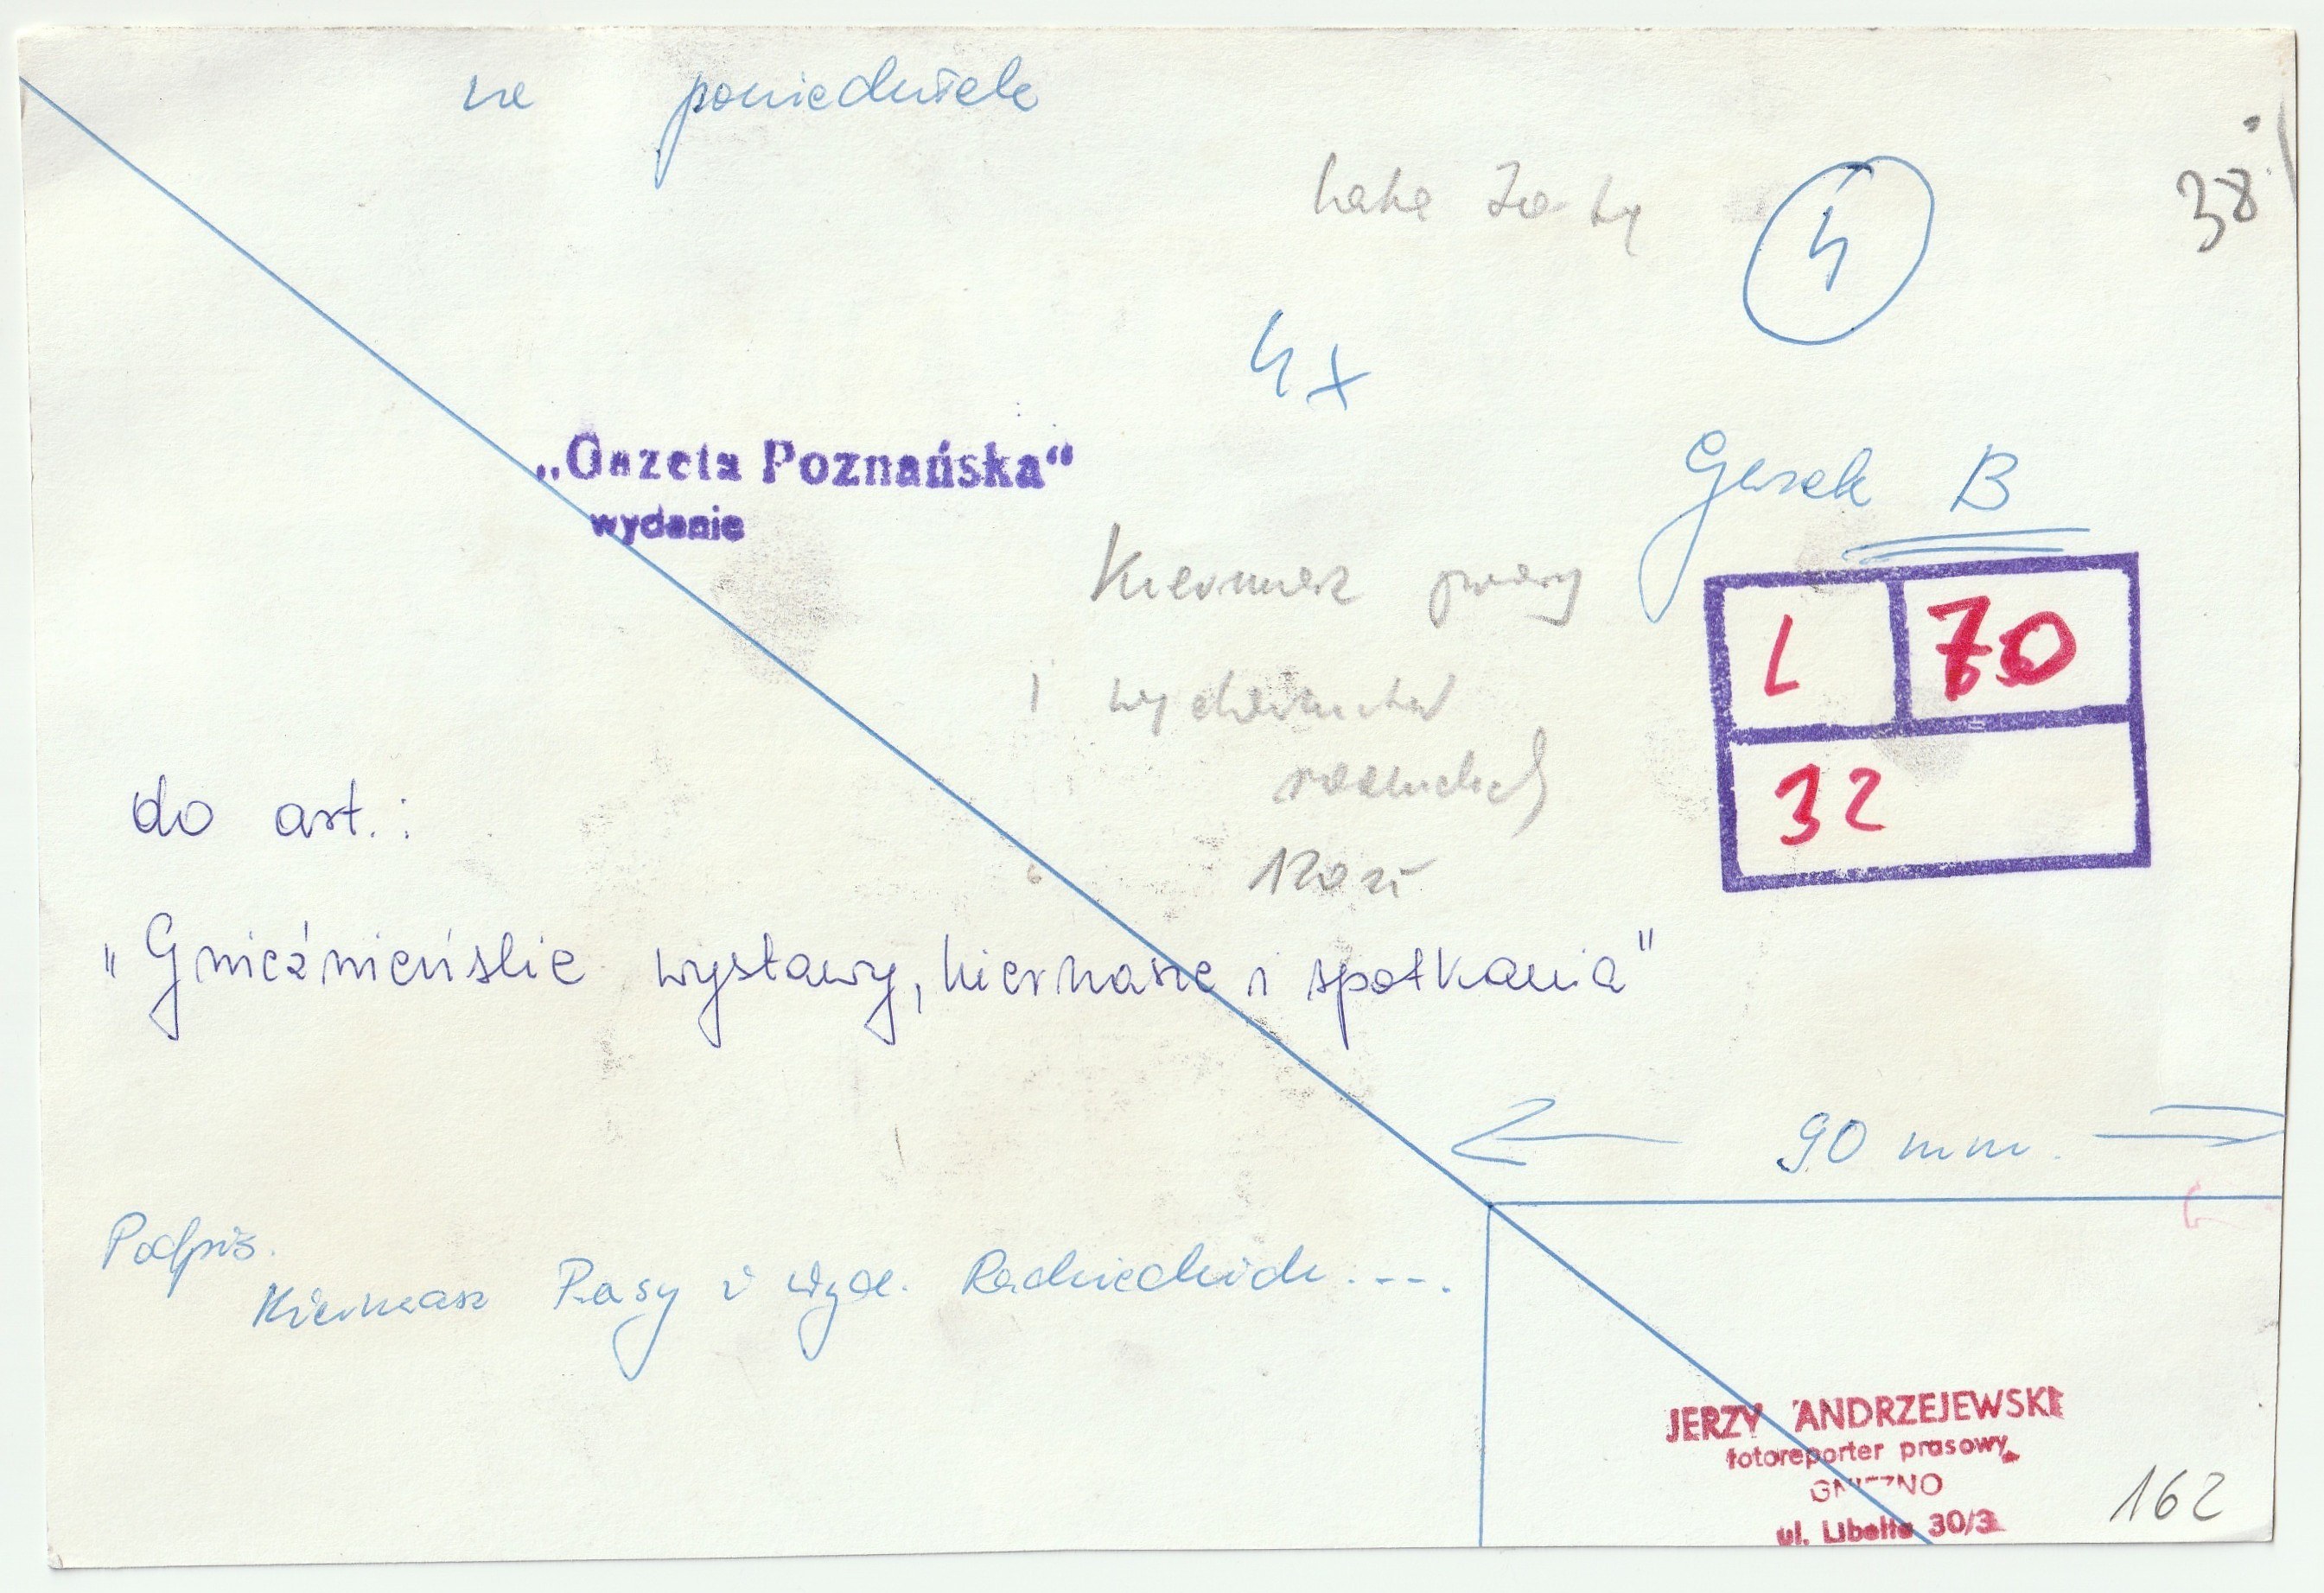 na poniedziałek
38
4
4x
„Gazeta Poznańska“
wydanie
B
Kiermasz prasy
i wydawnictw
radzieckich
120 zł
L 70
32
do art.:
"Gnieźnieńskie wystawy, kiermasze i spotkania"
90 mm.
Podpis.
Kiermasz Prasy i wyd. Radzieckich....
JERZY ANDRZEJEWSKI
fotoreporter prasowy
GNIEZNO
ul. Libelta 30/3
162